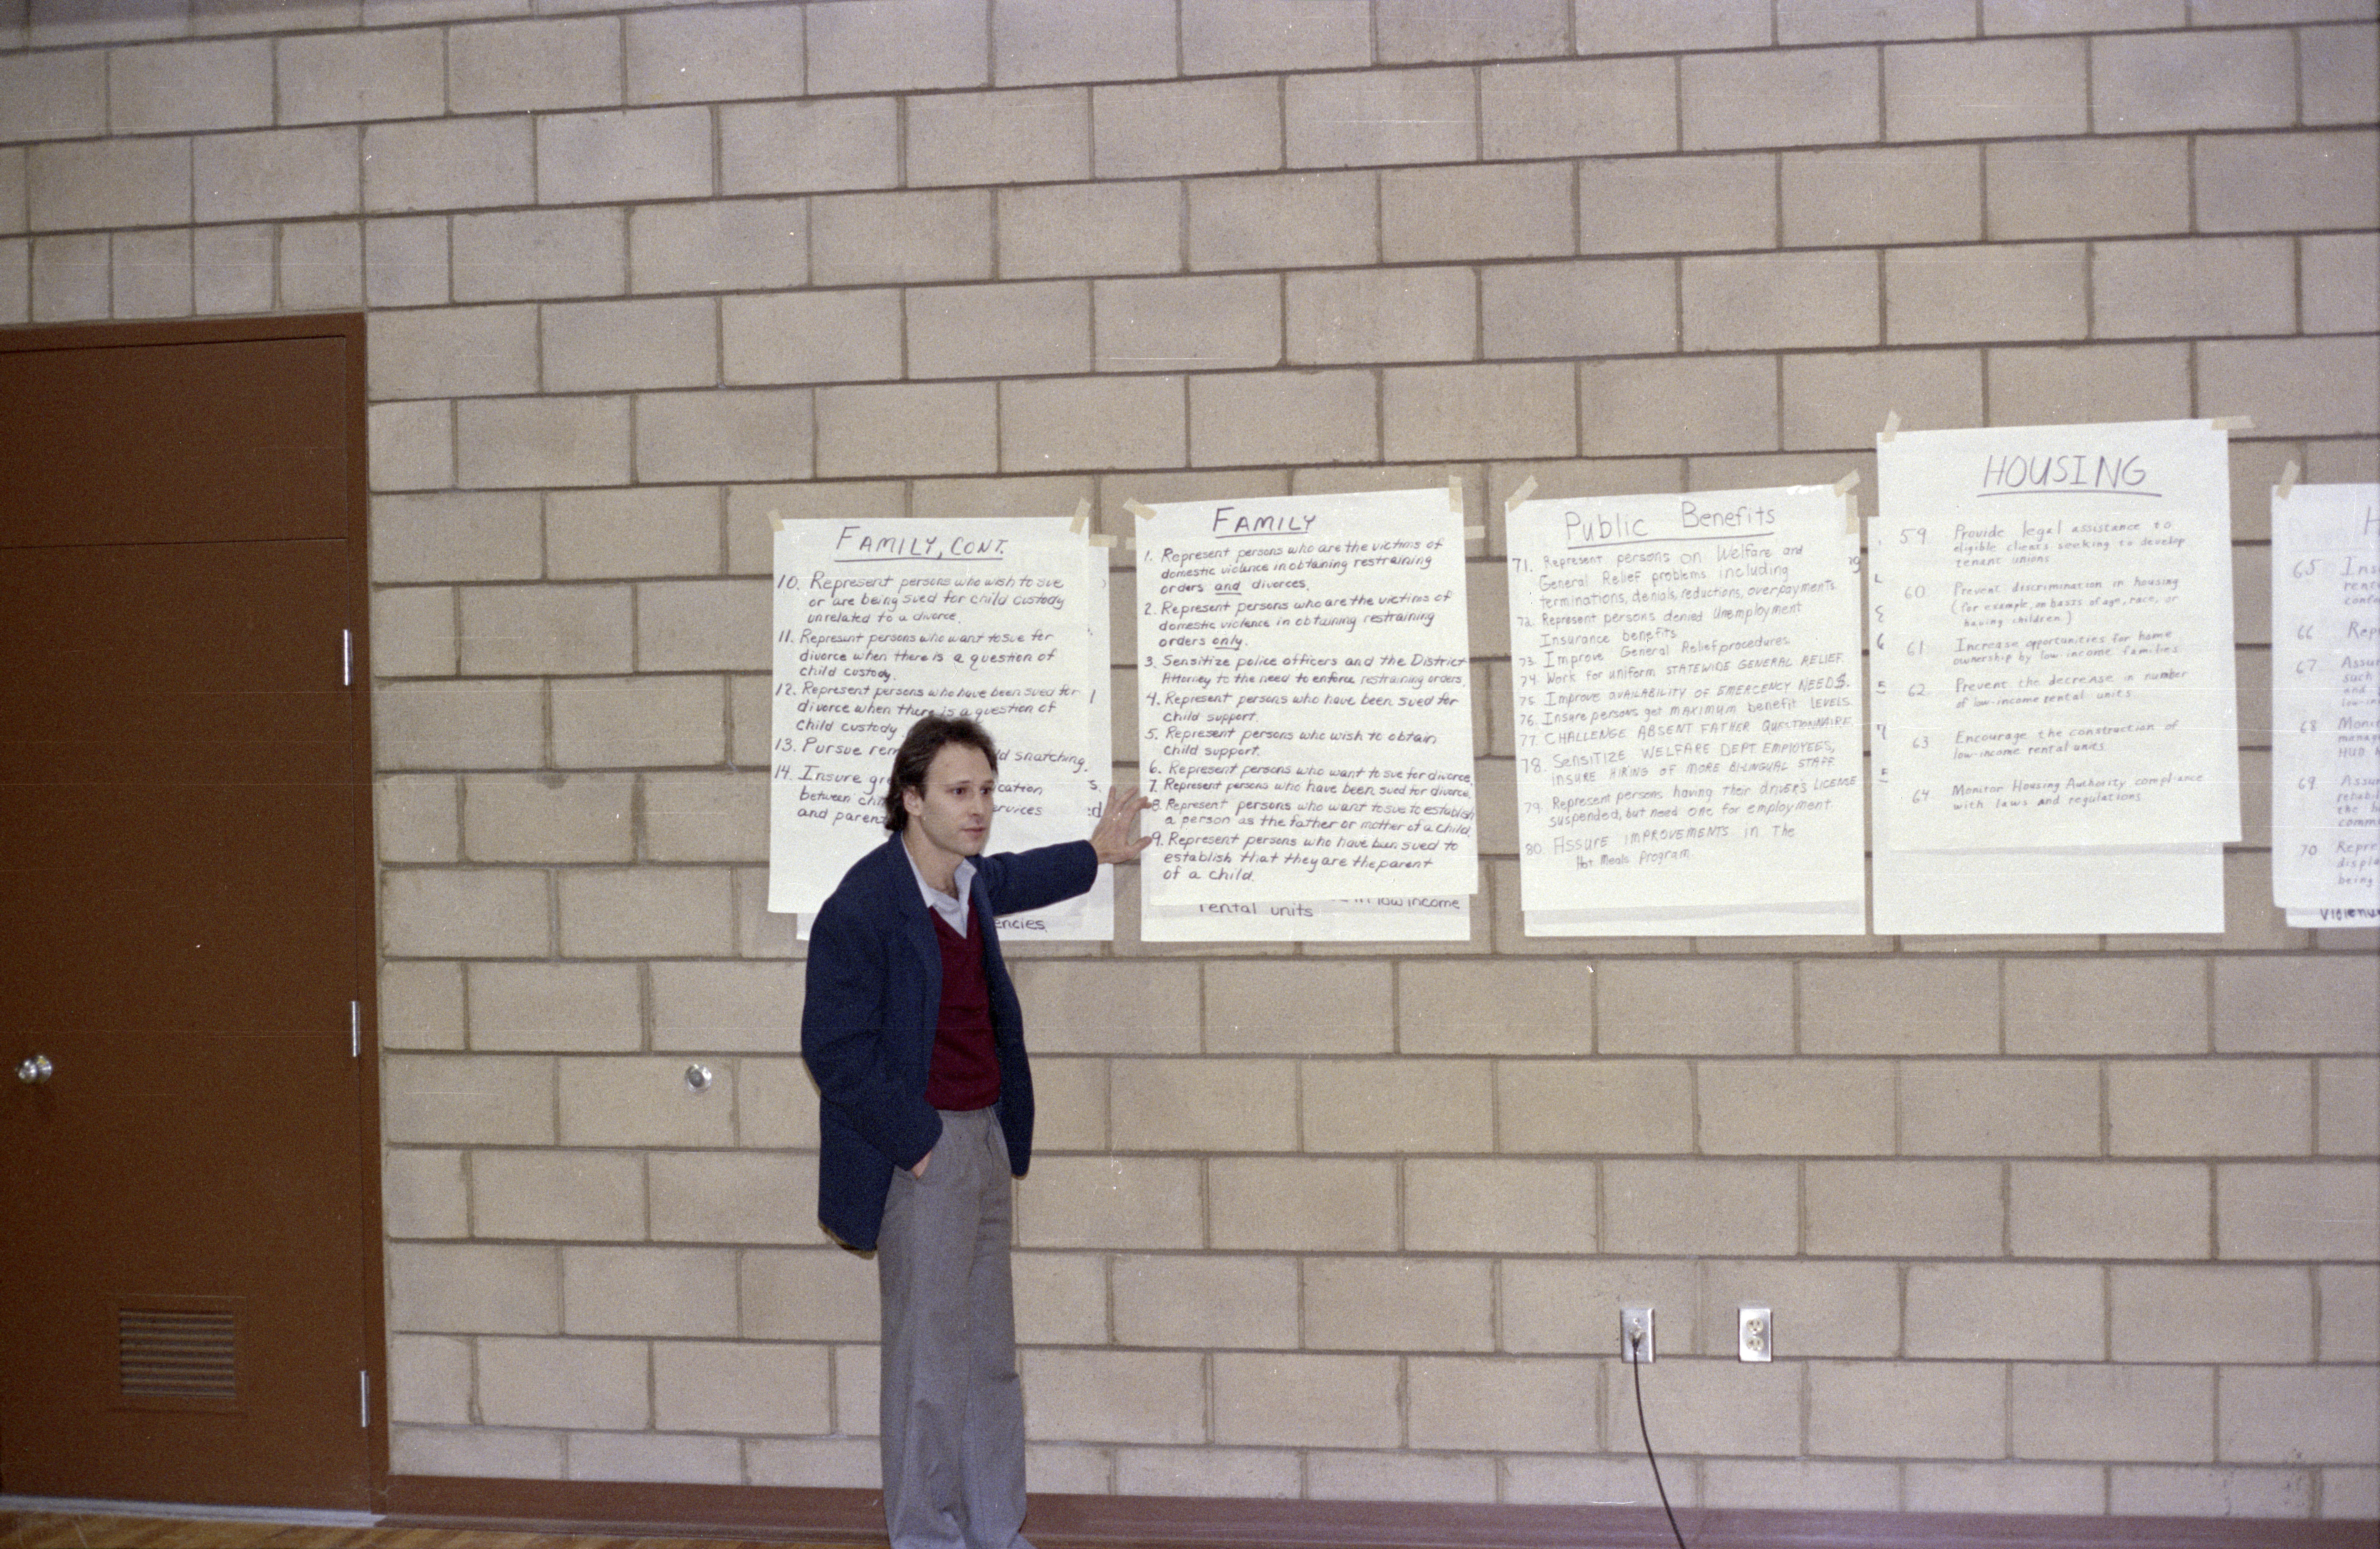 FAMILY, CONT.
10. Represent persons who wish to sue
or are being sued for child custody
unrelated to a divorce.
11. Represent persons who want to sue for
divorce when there is a question of
child custody.
12. Represent persons who have been sued for
divorce when there is a question of
child custody
13. Pursue ld snatching.
14. Insure cation
between ervices
and paren
encies
FAMILY
1. Represent persons who are the victims of
domestic violence in obtaining restraining
orders and divorces.
2. Represent persons who are the victims of
domestic violence in obtaining restraining
orders only.
3. Sensitize police officers and the District
Attorney to the need to enforce restraining orders.
4. Represent persons who have been sued for
child support.
5. Represent persons who wish to obtain
child support.
6. Represent persons who want to sue for divorce.
7. Represent persons who have been sued for divorce.
8. Represent persons who want to sue to establish
a person as the father or mother of a child.
9. Represent persons who have been sued to
establish that they are the parent
of a child.
in low income
rental units
Public Benefits
71. Represent persons on Welfare and
General Relief problems including
terminations, denials, reductions, overpayments
72. Represent persons denied Unemployment
Insurance benefits
73. Improve General Relief procedures
74. Work for uniform STATEWIDE GENERAL RELIEF.
75. Improve AVAILABILITY OF EMERGENCY NEEDS.
76. Insure persons get MAXIMUM benefit LEVELS.
77. CHALLENGE ABSENT FATHER QUESTIONNAIRE.
78. SENSITIZE WELFARE DEPT EMPLOYEES,
INSURE HIRING OF MORE BI-LINGUAL STAFF
79. Represent persons having their DRIVER'S LICENSE
suspended, but need one for employment
80. ASSURE IMPROVEMENTS in the
Hot Meals Program
HOUSING
59 Provide legal assistance to
eligible clients seeking to develop
tenant unions
60 Prevent discrimination in housing
(for example, on basis of age, race, or
having children)
61 Increase opportunities for home
ownership by low-income families
62 Prevent the decrease in number
of low-income rental units
63 Encourage the construction of
low-income rental units
64 Monitor Housing Authority compliance
with laws and regulations
H
65 Ins
66 Rep
67 Assu
such
and
low-in
68 Moni
manag
HUD
69 Assu
rehabil
the
comm
70 Repre
displa
being